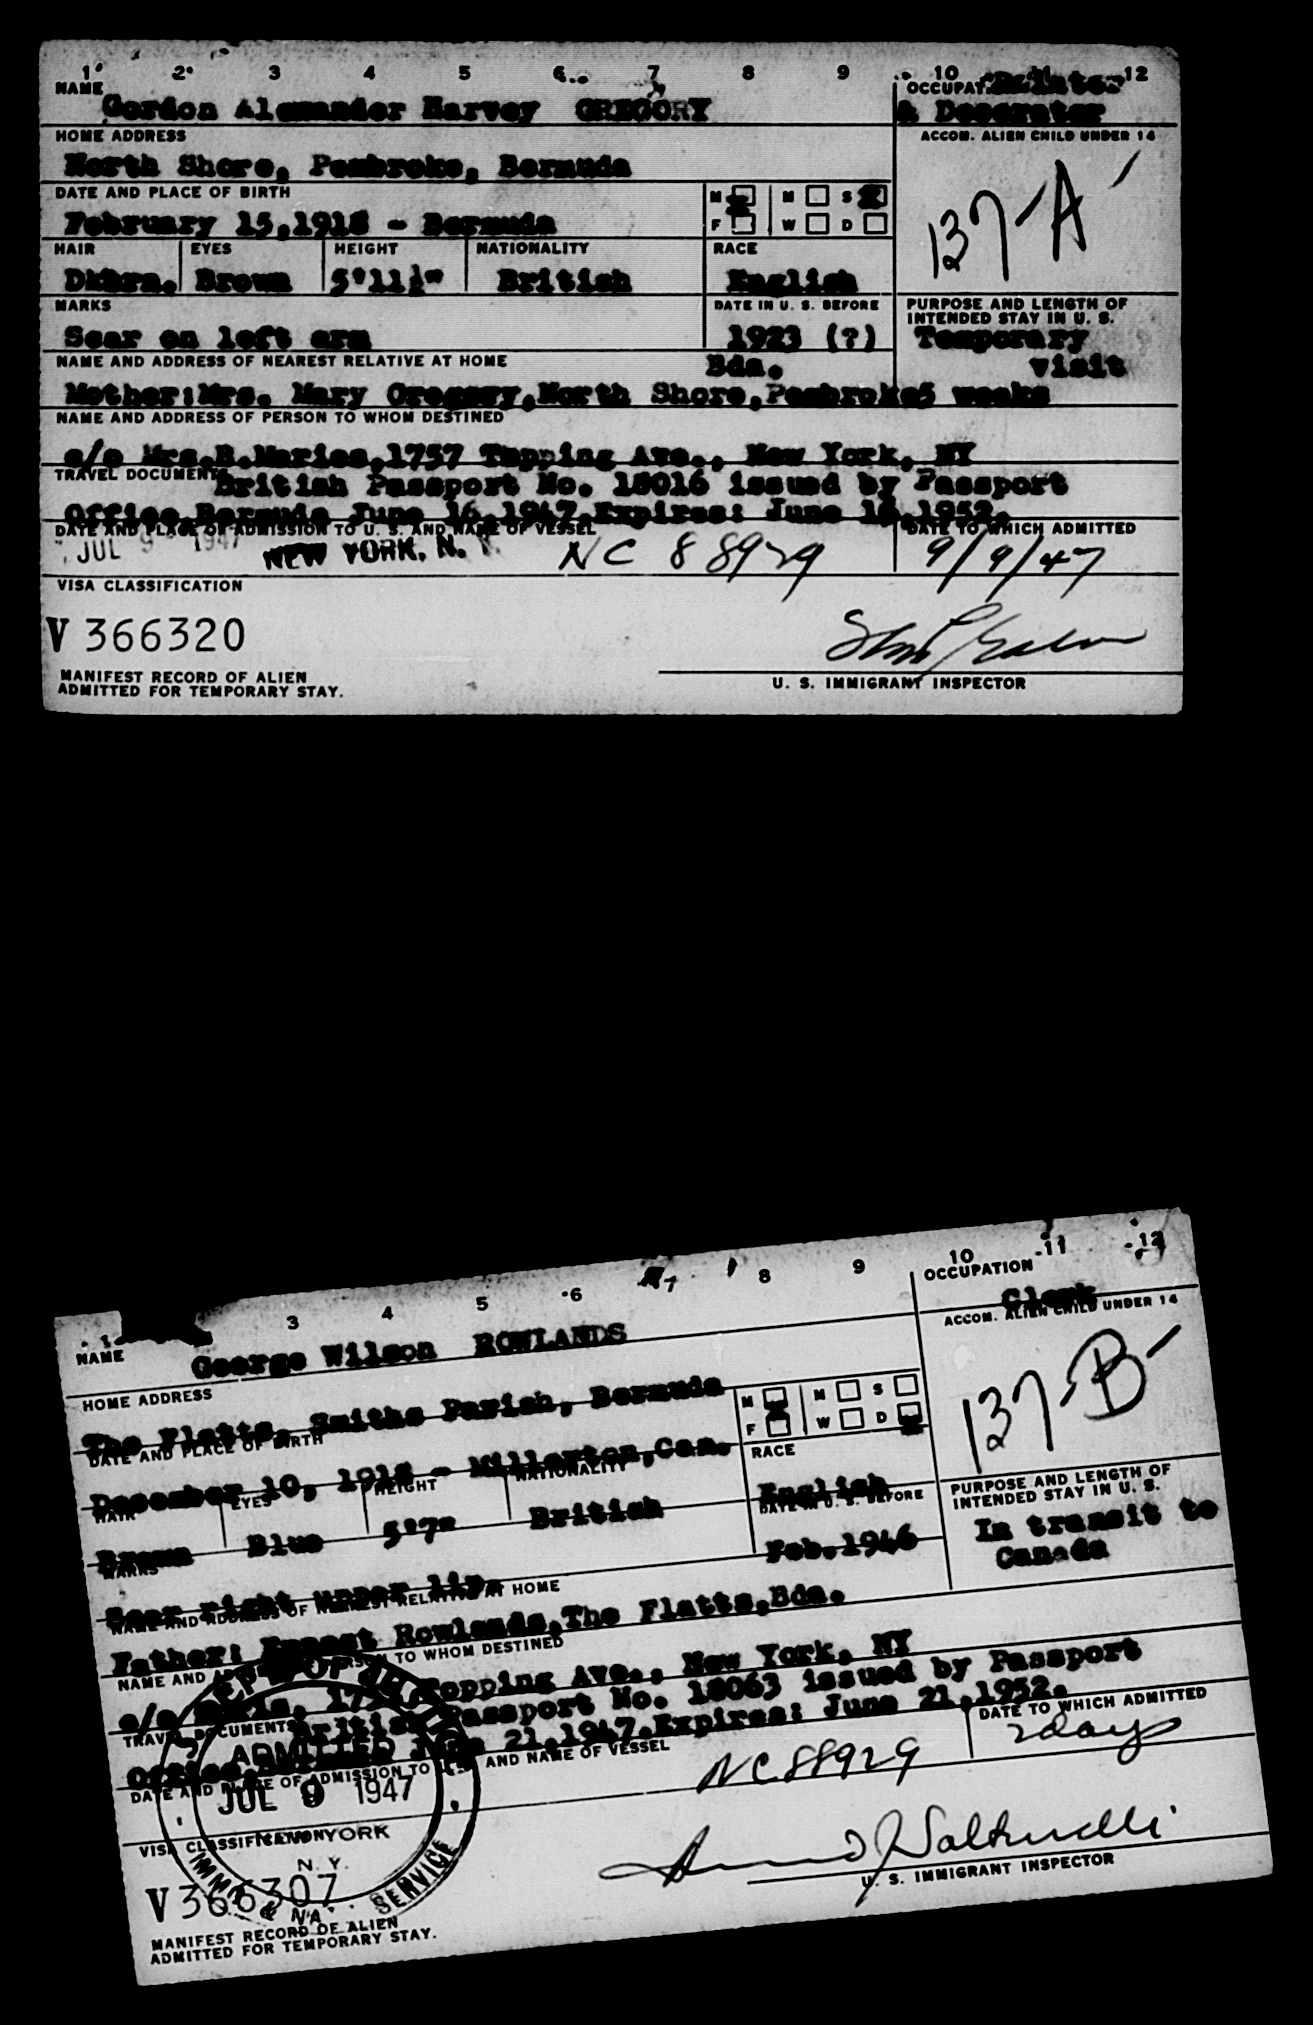 1 2 3 4 5 6 7 8 9 10 11 12
NAME Gordon Alexander Harvey GREGORY
OCCUPAT Painter
& Decorator
HOME ADDRESS
North Shore, Pembroke, Bermuda
ACCOM. ALIEN CHILD UNDER 14
137-A
DATE AND PLACE OF BIRTH
February 15,1918 - Bermuda
M M S
F W D
HAIR EYES HEIGHT NATIONALITY RACE
Dkbrn. Brown 5'11½" British English
MARKS
Scar on left arm
DATE IN U. S. BEFORE
1923 (?)
Bda.
PURPOSE AND LENGTH OF
INTENDED STAY IN U. S.
Temporary
visit
5 weeks
NAME AND ADDRESS OF NEAREST RELATIVE AT HOME
Mother:Mrs. Mary Gregory,North Shore,Pembroke
NAME AND ADDRESS OF PERSON TO WHOM DESTINED
c/o Mrs. 1757 Topping Ave., New York, NY
TRAVEL DOCUMENTS
British Passport No. 18016 issued by Passport
Office,Bermuda June 16,1947.Expires: June 16,1952.
DATE AND PLACE OF ADMISSION TO U. S. AND NAME OF VESSEL
JUL 9 1947 NEW YORK, N. Y. NC 88929
DATE TO WHICH ADMITTED
9/9/47
VISA CLASSIFICATION
V 366320
MANIFEST RECORD OF ALIEN
ADMITTED FOR TEMPORARY STAY.
U. S. IMMIGRANT INSPECTOR
1 3 4 5 6 7 8 9 10 11 12
NAME George Wilson ROWLANDS
OCCUPATION
Clerk
HOME ADDRESS
The Flatts, Smiths Parish, Bermuda
ACCOM. ALIEN CHILD UNDER 14
137-B
DATE AND PLACE OF BIRTH
December 10, 1918 - Millerton,Can.
M M S
F W D
HAIR EYES HEIGHT NATIONALITY RACE
Brown Blue 5'7" British English
MARKS
Scar right upper lip.
DATE IN U. S. BEFORE
Feb.1946
PURPOSE AND LENGTH OF
INTENDED STAY IN U. S.
In transit to
Canada
NAME AND ADDRESS OF NEAREST RELATIVE AT HOME
Father: Ernest Rowlands,The Flatts,Bda.
NAME AND ADDRESS OF PERSON TO WHOM DESTINED
c/o 1757 Topping Ave., New York, NY
TRAVEL DOCUMENTS
British Passport No. 18063 issued by Passport
Office, June 21,1947.Expires: June 21,1952.
DATE AND PLACE OF ADMISSION TO U. S. AND NAME OF VESSEL
NC88929
DATE TO WHICH ADMITTED
2 days
ADMITTED
JUL 9 1947
NEW YORK
N. Y.
IMM. & NA. SERVICE
VISA CLASSIFICATION
V 366307
MANIFEST RECORD OF ALIEN
ADMITTED FOR TEMPORARY STAY.
U. S. IMMIGRANT INSPECTOR